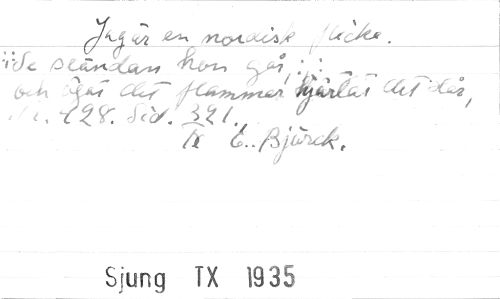 Jag är en nordisk flicka.
:,: Se sländan hon går, :,:
och ögat det flammar hjärtat det slår,
Nr. 128. Sid. 321.
TX E. Bjürck.
Sjung TX 1935